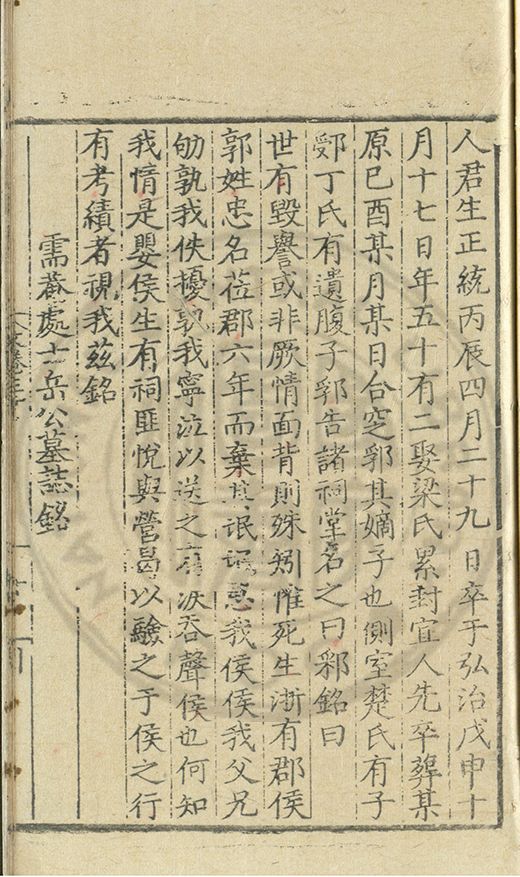 人君生正統丙辰四月二十九日卒于弘治戊申十
月十七日年五十有二娶梁氏累封宜人先卒葬某
原己酉某月某日合窆郛其嫡子也側室楚氏有子
丁氏有遺腹子郛告諸祠堂名之曰銘曰
世有毀譽或非厥情面背則殊矧惟死生浙有郡侯
郭姓忠名蒞郡六年而棄其氓氓思我侯侯我父兄
劬孰我佚擾孰我寧泣以送之有淚吞聲侯也何知
我情是嬰侯生有祠匪悅與營曷以驗之于侯之行
有考績者視我茲銘
需菴處士岳公墓誌銘